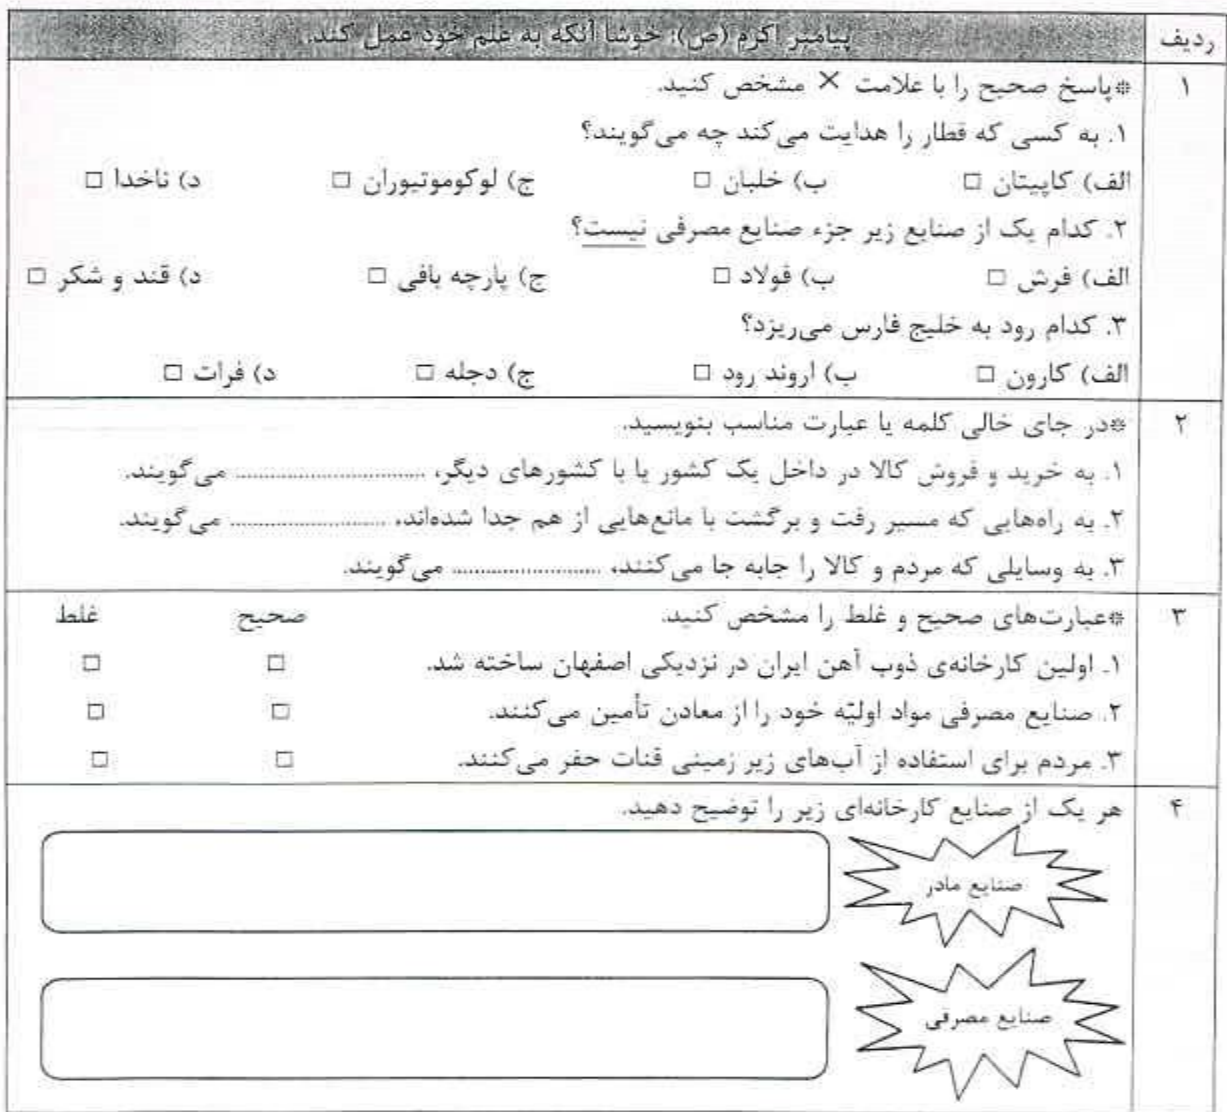 ردیف
پیامبر اکرم (ص): خوشا آنکه به علم خود عمل کند.
۱
*پاسخ صحیح را با علامت × مشخص کنید.
۱. به کسی که قطار را هدایت می‌کند چه می‌گویند؟
الف) کاپیتان □ ب) خلبان □ ج) لوکوموتیوران □ د) ناخدا □
۲. کدام یک از صنایع زیر جزء صنایع مصرفی نیست؟
الف) فرش □ ب) فولاد □ ج) پارچه بافی □ د) قند و شکر □
۳. کدام رود به خلیج فارس می‌ریزد؟
الف) کارون □ ب) اروند رود □ ج) دجله □ د) فرات □
۲
*در جای خالی کلمه یا عبارت مناسب بنویسید.
۱. به خرید و فروش کالا در داخل یک کشور یا با کشورهای دیگر، .............................. می‌گویند.
۲. به راه‌هایی که مسیر رفت و برگشت با مانع‌هایی از هم جدا شده‌اند، .............................. می‌گویند.
۳. به وسایلی که مردم و کالا را جابه جا می‌کنند، .............................. می‌گویند.
۳
*عبارت‌های صحیح و غلط را مشخص کنید. صحیح غلط
۱. اولین کارخانه‌ی ذوب آهن ایران در نزدیکی اصفهان ساخته شد. □ □
۲. صنایع مصرفی مواد اولیّه خود را از معادن تأمین می‌کنند. □ □
۳. مردم برای استفاده از آب‌های زیر زمینی قنات حفر می‌کنند. □ □
۴
هر یک از صنایع کارخانه‌ای زیر را توضیح دهید.
صنایع مادر
صنایع مصرفی